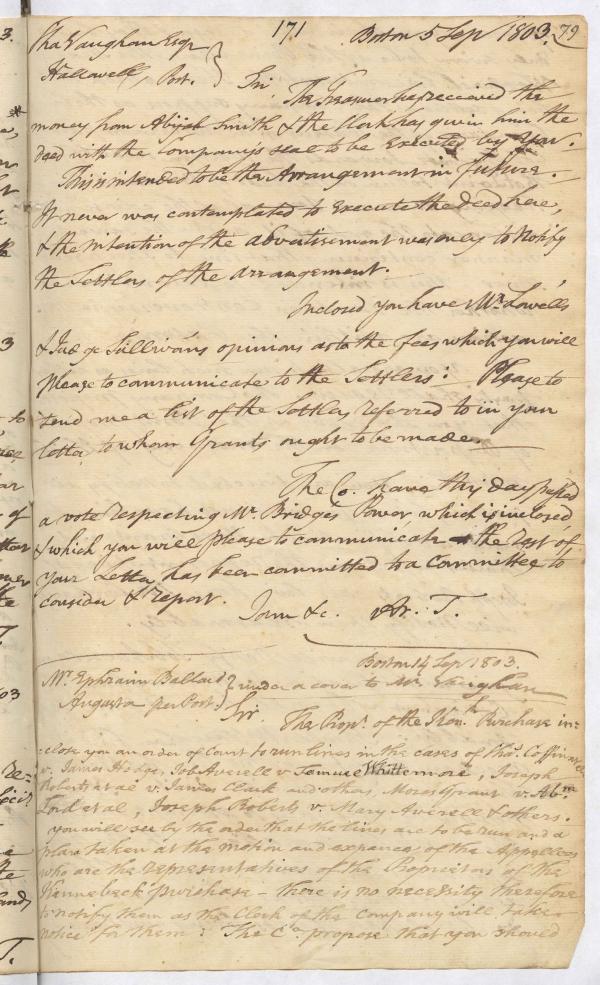 171
79
Boston 5 Sep 1803.
Cha Vaughan Esqr
Hallowell, Post. } Sir,
The Treasurer has received the
money from Abijah Smith & the Clerk has given him the
deed with the company's seal to be Executed by You.
This is intended to be the Arrangement in future.
It never was contemplated to Execute the deed here,
& the intention of the advertisement was only to Notify
the Settlers of the arrangement.
Inclosed you have Mr. Lowell's
& Judge Sullivan's opinions as to the fees which you will
please to communicate to the Settlers: Please to
send me a list of the Settlers referred to in your
letter, to whom Grants ought to be made.
The Co. have this day passed
a vote respecting Mr. Bridge's Power, which is inclosed,
& which you will please to communicate the rest of
Your Letter has been committed to a Committee to
consider & report.
Iam &c. Ar. T.
Boston 14 Sep 1803.
Mr. Ephraim Ballard } under a cover to Mr. Vaughan
Augusta per Post. } Sir
The Propr. of the Kenk. Purchase in=
=close you an order of Court to run lines in the cases of Thos. Coffin
v. James Hodges, Job Averell v Samuel Whittemore, Joseph
Roberts et al v. James Clark and others, Moses Grant v. Abm.
Lord et al, Joseph Roberts v. Mary Averell & others.
you will see by the order that the lines are to be run and a
plan taken at the motion and expence of the Appellees
who are the representatives of the Proprietors of the
Kennebeck purchase - there is no necessity therefore
to notify them as the Clerk of the company will take
notice for them: The Co. propose that you should